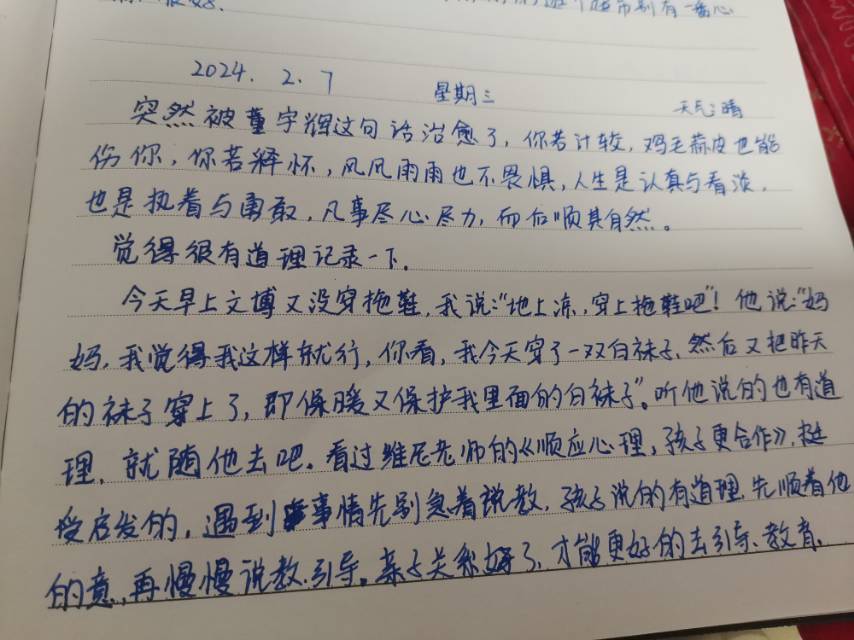 别有一番心
2024.2.7 星期三 天气:晴
突然被董宇辉这句话治愈了,你若计较,鸡毛蒜皮也能
伤你,你若释怀,风风雨雨也不畏惧,人生是认真与看淡,
也是执着与勇敢,凡事尽心尽力,而后顺其自然。
觉得很有道理记录一下。
今天早上文博又没穿拖鞋,我说:“地上凉,穿上拖鞋吧”!他说:“妈
妈,我觉得我这样就行,你看,我今天穿了一双白袜子,然后又把昨天
的袜子穿上了,即保暖又保护我里面的白袜子”。听他说的也有道
理,就随他去吧。看过维尼老师的《顺应心理,孩子更合作》,挺
受启发的,遇到事情先别急着说教,孩子说的有道理,先顺着他
的意,再慢慢说教、引导。亲子关系好了,才能更好的去引导、教育。